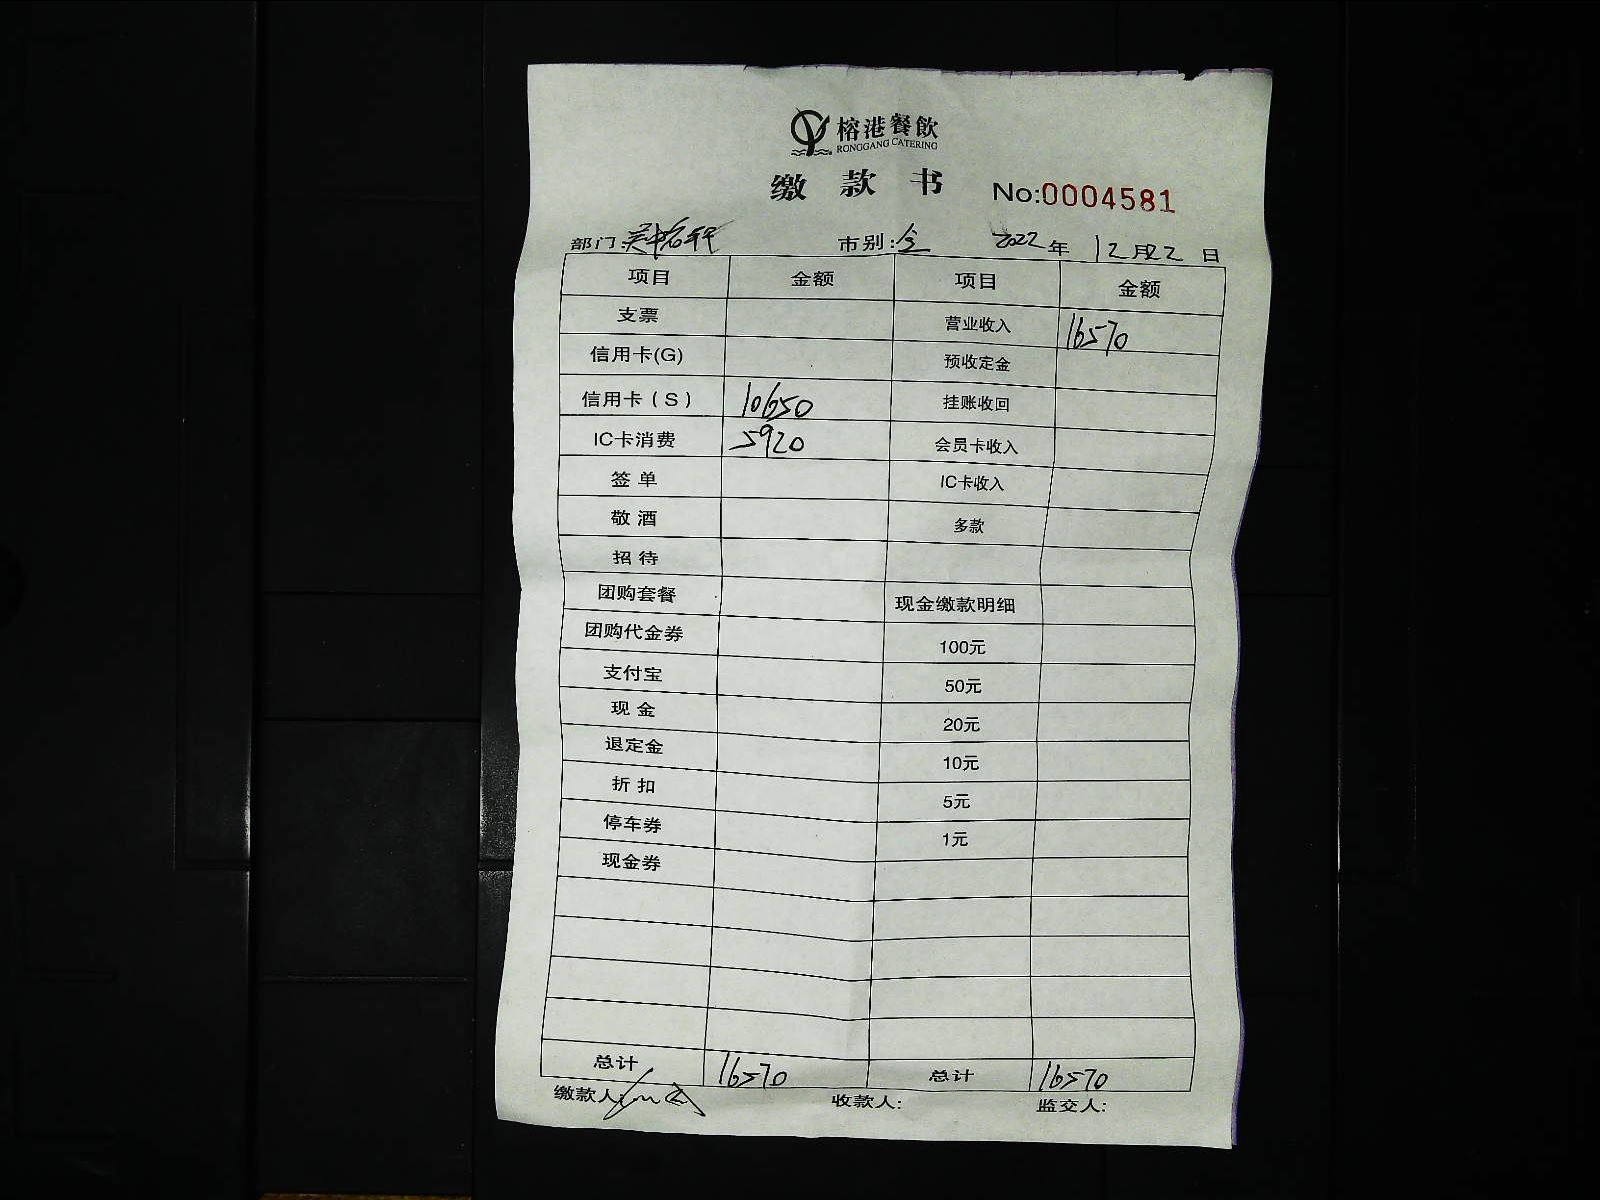 榕港餐飲
RONGGANG CATERING
缴款书 No:0004581
部门 市别: 2022年12月22日
项目 金额 项目 金额
支票 营业收入 16570
信用卡(G) 预收定金
信用卡(S) 10650 挂账收回
IC卡消费 5920 会员卡收入
签单 IC卡收入
敬酒 多款
招待
团购套餐 现金缴款明细
团购代金券 100元
支付宝 50元
现金 20元
退定金 10元
折扣 5元
停车券 1元
现金券
总计 16570 总计 16570
缴款人: 收款人: 监交人: